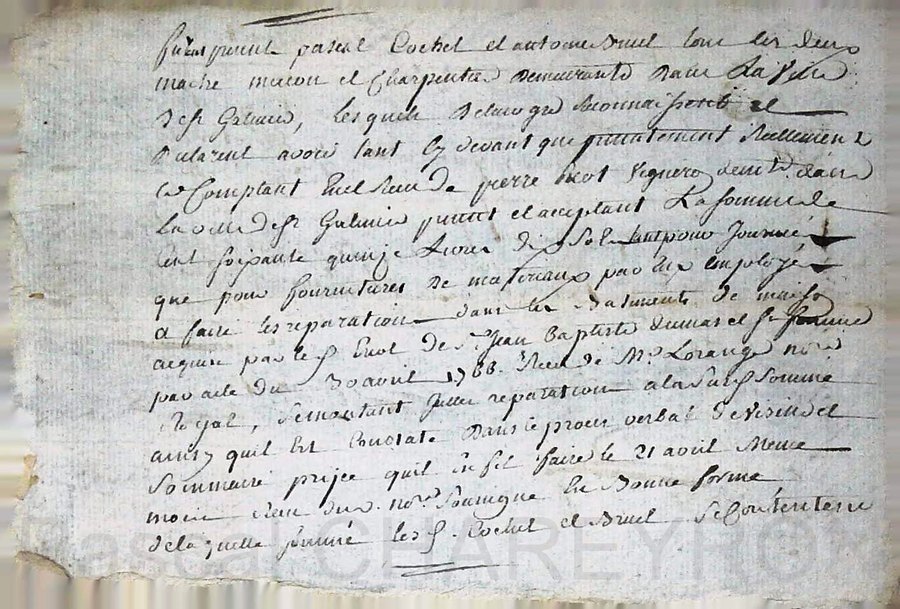 furent present pascal Cochet et antoine Bruel tous les deux
maitre macon et Charpentier Demeurants Dans La Ville
De st Galmier, Lesquels De leur gre reconnaissent et
Declarent avoir tant cy devant que presentement reellement
Comptant receu de pierre vigneron demt dans
La ville de st Galmier present et acceptant La somme de
cent soixante quinze Livres dix sols tant pour Journé
que pour fournitures De materiaux par Eux employé
a faire les reparation dans les Batiments de maison
acquise par le S de Sr Jean Baptiste dumas et sa femme
par acte du 30 avril 1788. receu de Me Lorange nore
Royal, se montant reparation a la susd Somme
ainsy quil Est Constate Dans le proces verbal de et
Sommaire prisee quil en fit faire le 21 avril Meme
mois receu du nore Soussigne En Bonne forme
de laquelle somme les S. Cochet et Bruel se Contentent
Pascal CHAREYRON